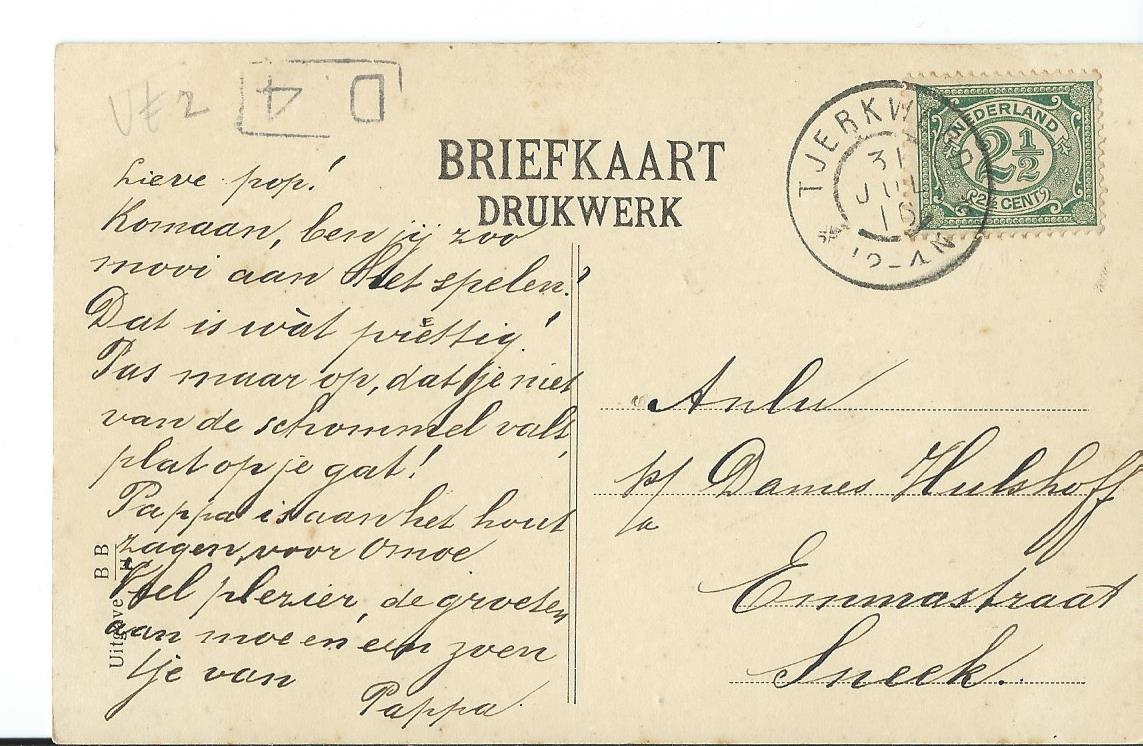 VE 2
D 4
BRIEFKAART
DRUKWERK
TJERKW
31
JUL
16
12-4N
NEDERLAND
2½
2½ CENT
Lieve pop!
Komaan, ben jij zoo
mooi aan Het spelen!
Dat is wàt prettig!
Pas maar op, dat je niet
van de schommel valt,
plat op je gat!
Pappa is aan het hout
zagen, voor Omoe
Veel plezier, de groeten
aan moe en een zoen
tje van
Pappa.
Uitgave B B H
Anlu
p/a Dames Hulshoff
Emmastraat
Sneek.